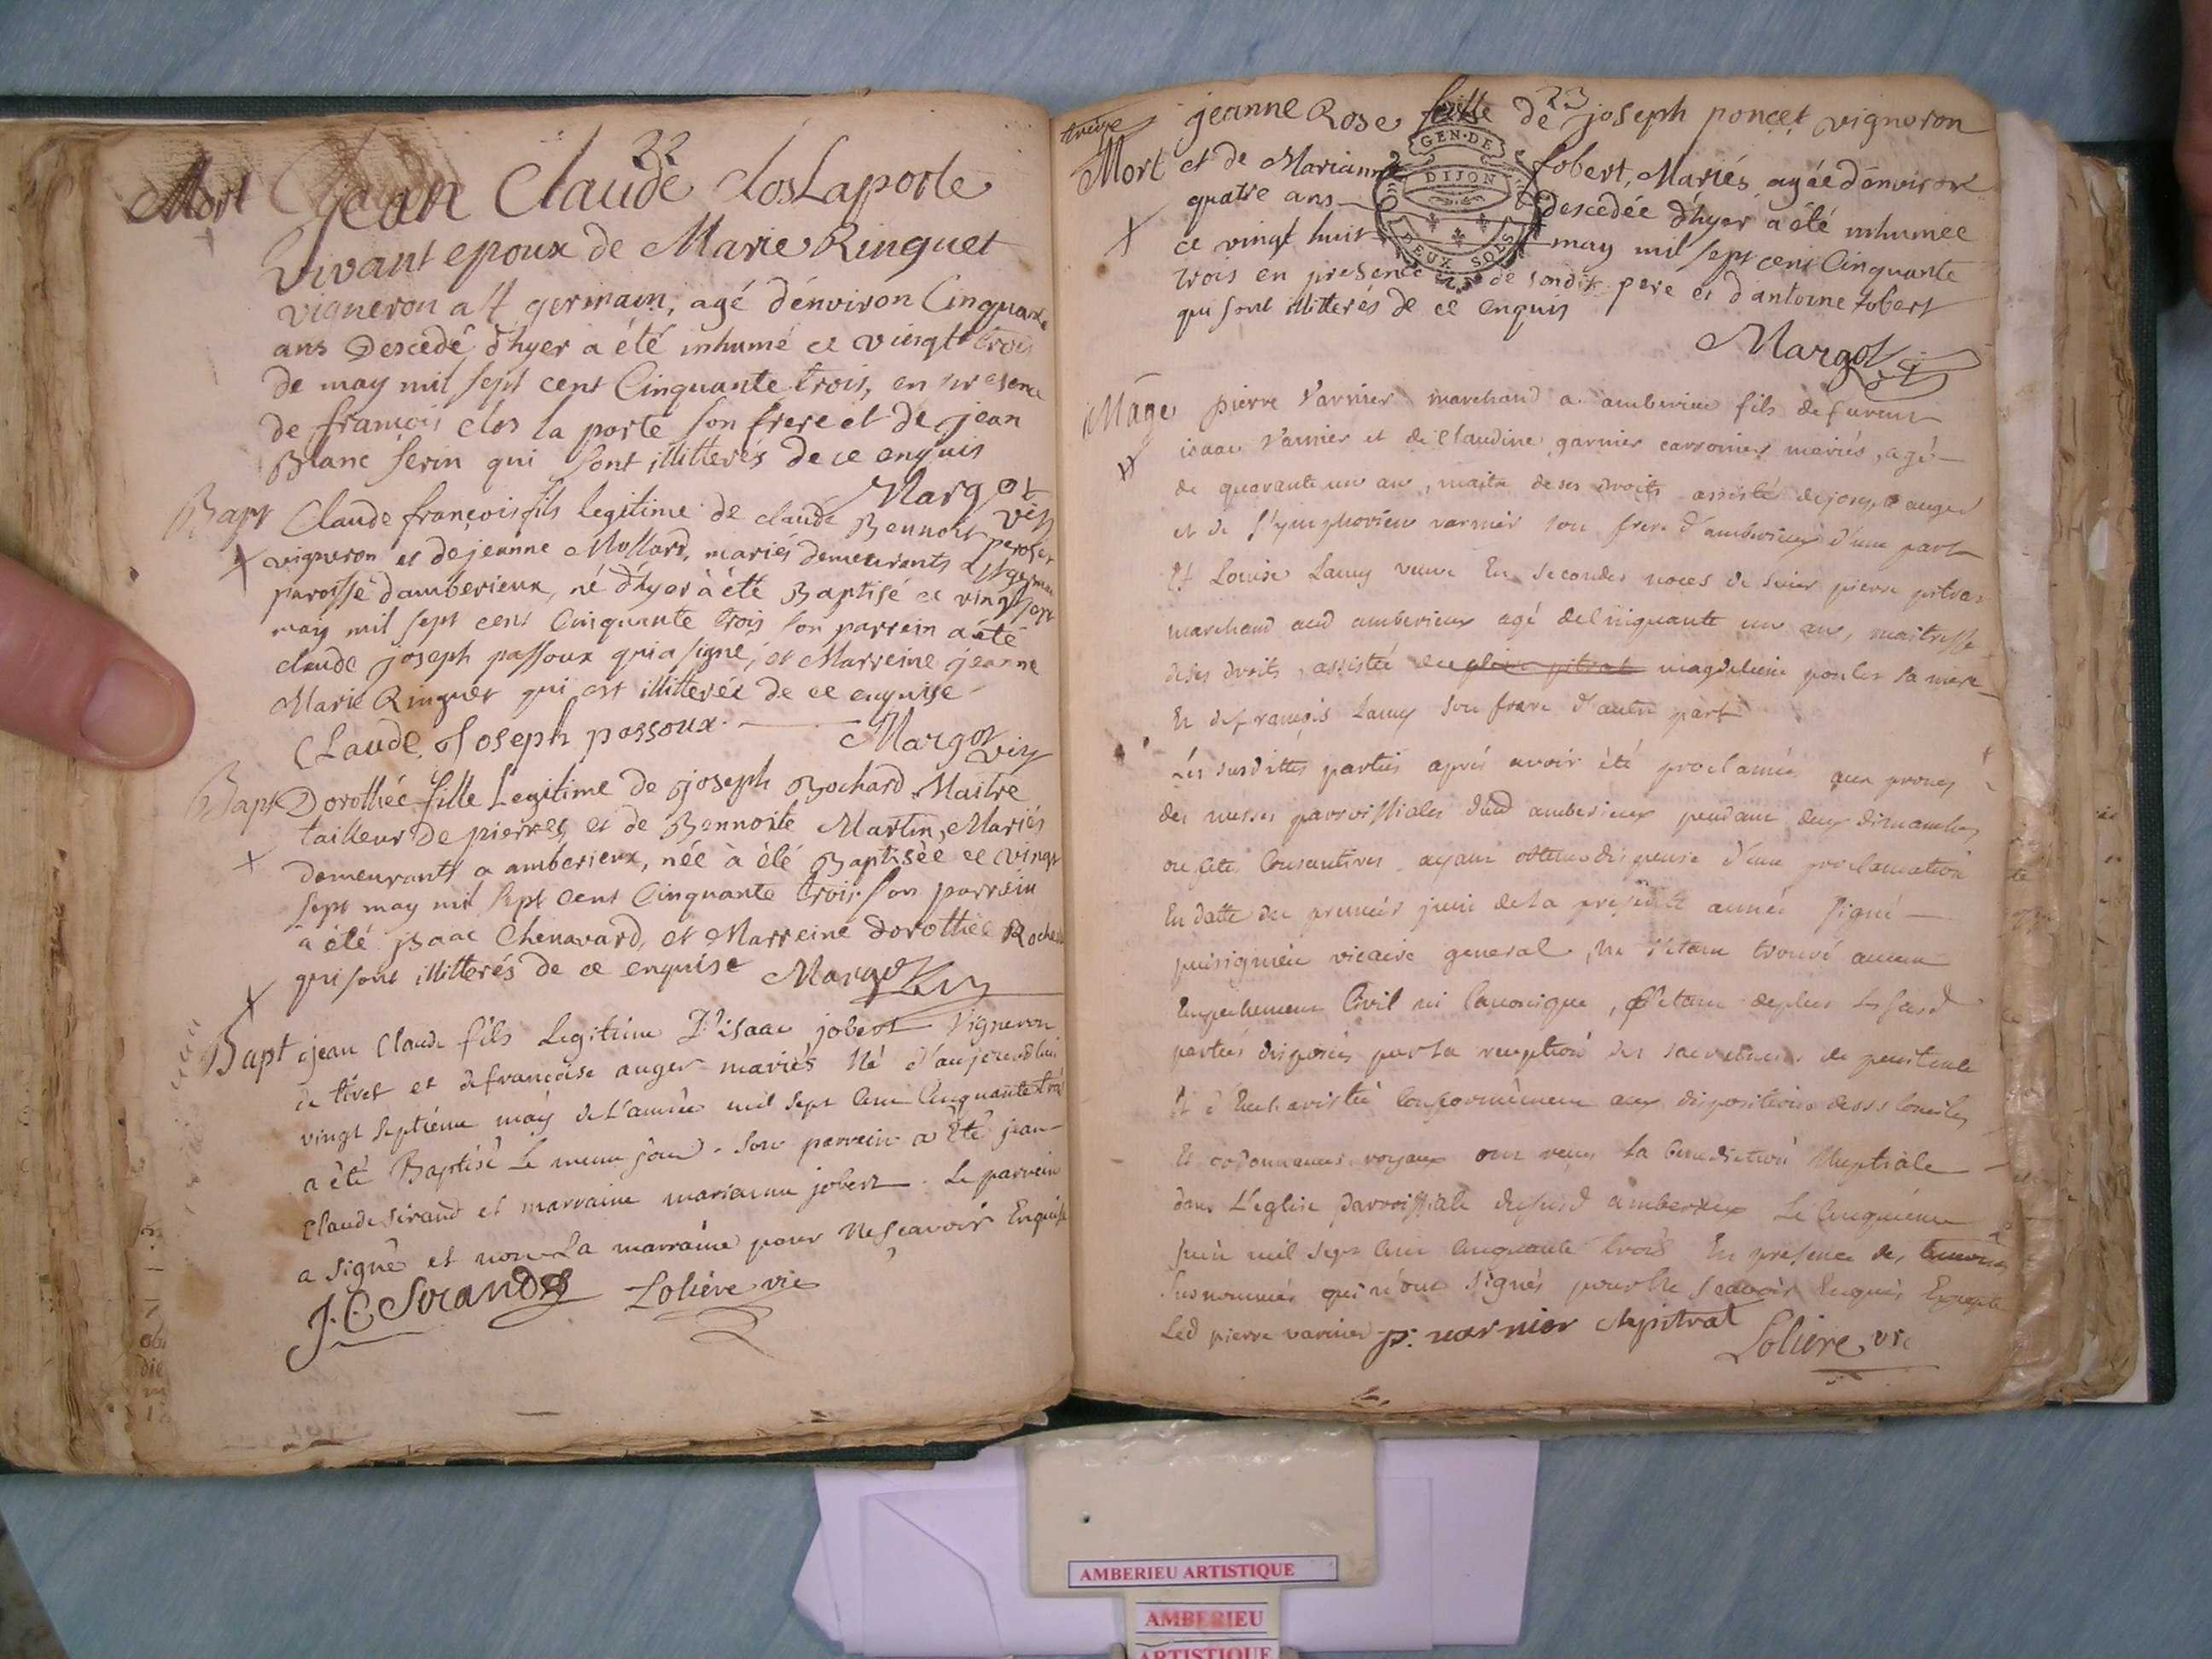 22
Mort Jean Claude clos Laporte
Vivant epoux de Marie Ringuet
vigneron a st germain, agé d'environ Cinquante
ans Descedé d'hyer a été inhumé ce viengt trois
de may mil sept cent Cinquante trois, en presence
de françois clos la porte son frere et de jean
Blanc ferin qui sont illitterés de ce enquis
Margot vic
Bapt Claude françois fils legitime de claude Bennoit peroset
vigneron et de jeanne Mollard, mariés demeurants a st germain
paroisse d'amberieux, né d'hyer à été Baptisé ce vingt sept
may mil sept cent Cinquante trois son parrein a été
claude joseph passoux qui a signé, et Marreine jeanne
Marie Ringuet qui est illitterée de ce enquise
Claude Joseph passoux Margot vic
Bapt Dorothée fille Legitime de joseph Bochard Maitre
tailleur de pierres et de Bennoite Martin, Mariés
demeurants a amberieux, née à été Baptisée ce vingt
sept may mil sept cent Cinquante trois son parrein
à été jsaac Chenavard, et Marreine dorothée
qui sont illitterés de ce enquise Margot
Bapt jean Claude fils Legitime D'isaac jobert Vigneron
de tiret et de françoise auger mariés Né d'aujourdhui
vingt septiéme may de L'année mil sept Cent Cinquante trois
a été Baptisé Le meme jour. son parrein a Eté jean
Claude sirand et marraine marianne jobert. Le parrein
a signé et non La marraine pour Ne sçavoir Enquise
J. C. Sirand Lolière vic
23
treize jeanne Rose fille de joseph poncet vigneron
Mort et de Marianne Jobert, Mariés agée d'environ
quatre ans descedée d'hyer a été inhumée
ce vingt huit may mil sept cent Cinquante
trois en presence de sondit pere et d'antoine Jobert
qui sont illitterés de ce enquis
Margot
GEN. DE
DIJON
DEUX SOLS
Mage pierre Varnier marchand a amberieu fils de furent
isaac Varnier et de Claudine garnier mariés, agé
de quarante un an, maitre de ses droits assisté de joseph auger
et de Symphorien varnier son frere d'amberieux d'une part
Et Louise Lamy veuve En secondes noces de sieur pierre pitrat
marchand aud amberieux agé de Cinquante un an, maitresse
de ses droits, assistée de magdeleine poulet sa mere
Et de françois Lamy son frere d'autre part
Les susdittes parties aprés avoir été proclamées aux prones
des messes parroissiales dud amberieux pendant deux dimanches
ou fetes Consecutives ayant obtenu dispense d'une proclamation
En datte du premier juin de la presente année signé
puisignieu vicaire general, Ne s'etant trouvé aucun
Empechement Civil ni Canonique, s'etant deplus Lesd
parties disposées par la reception des sacrements de penitence
Et d'Eucharistie Conformément aux dispositions des sts Conciles
Et ordonnances royaux ont reçu la benediction Nuptiale
dans L'eglise parroissiale dud amberieux Le Cinquiéme
juin mil sept Cent Cinquante trois En presence des temoins
susnommés qui n'ont signés pour Ne scavoir Enquis Excepté
Led pierre varnier p. varnier pitrat
Lolière vic
AMBERIEU ARTISTIQUE
AMBERIEU
ARTISTIQUE